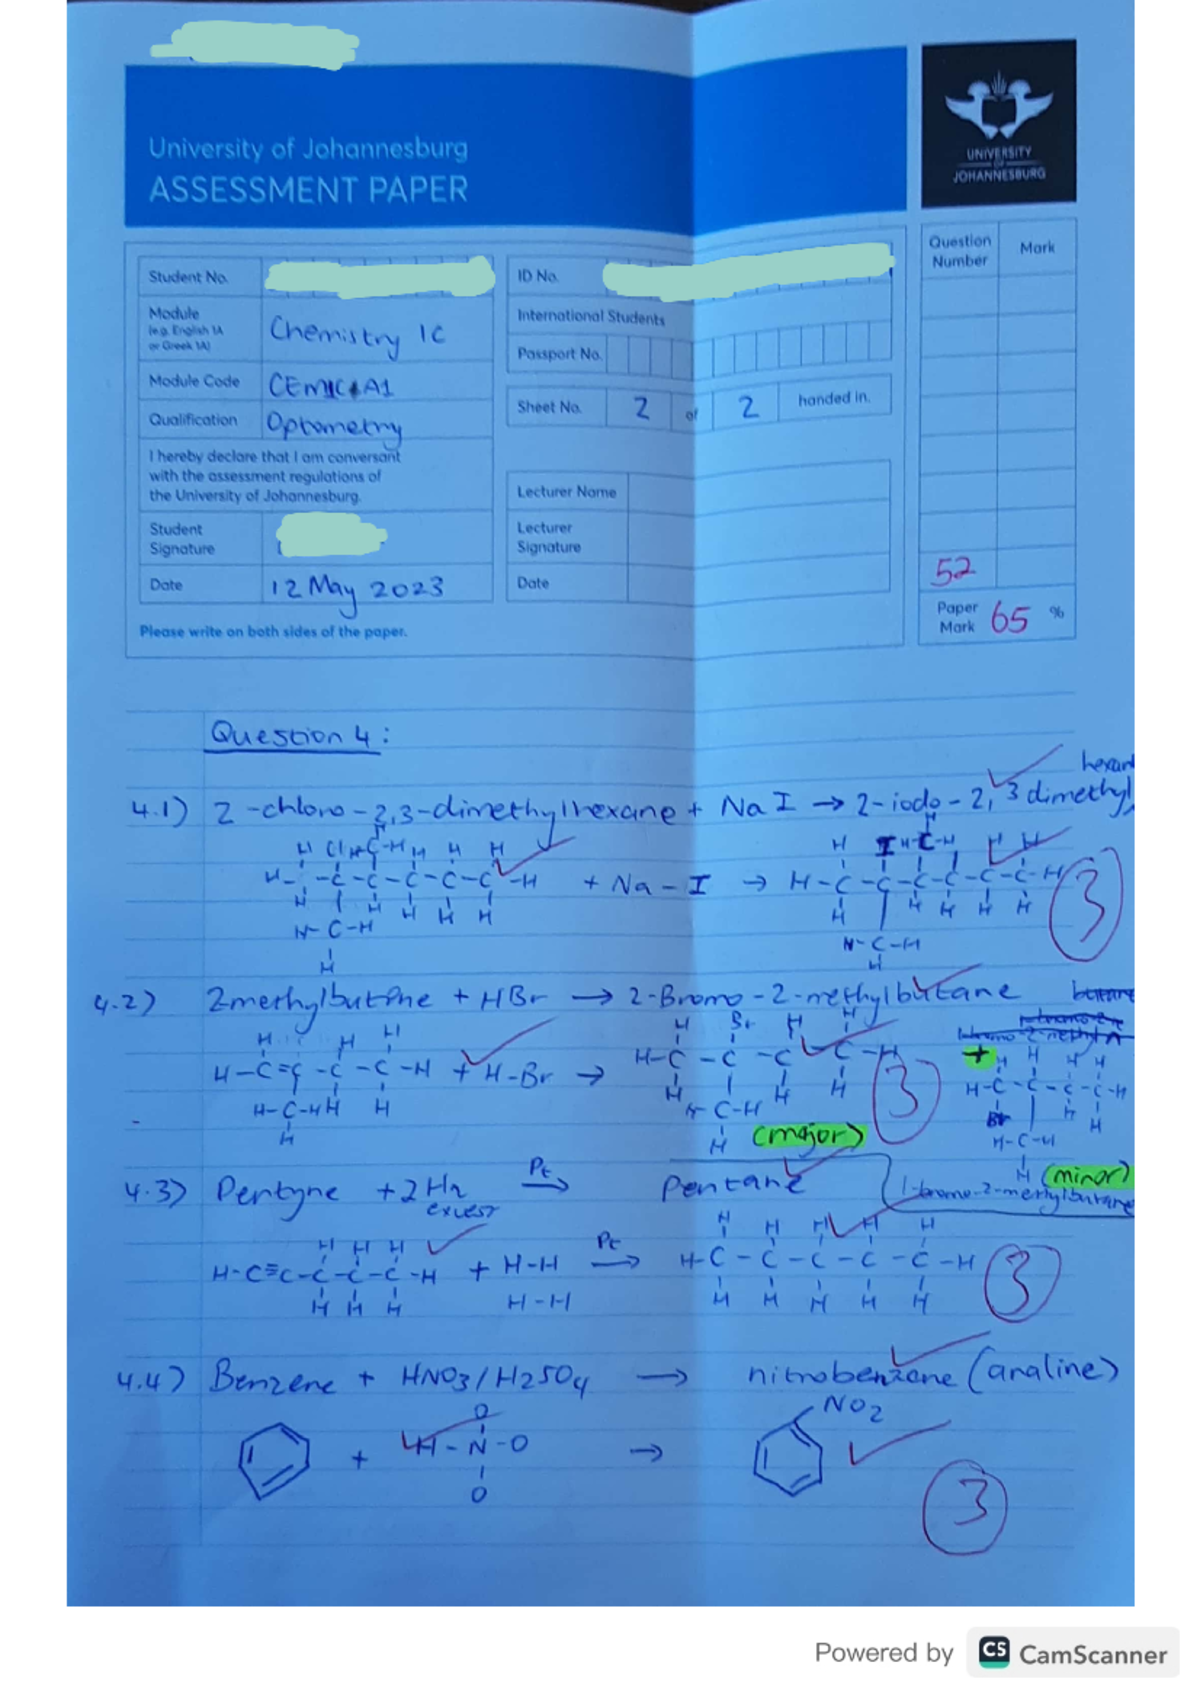 University of Johannesburg
ASSESSMENT PAPER
UNIVERSITY
OF
JOHANNESBURG
Question Number
Mark
Student No.
ID No.
Module
(e.g. English 1A
or Greek 1A)
Chemistry 1C
International Students
Passport No.
Module Code
CEM1C A1
Sheet No. 2 of 2 handed in.
Qualification
Optometry
I hereby declare that I am conversant
with the assessment regulations of
the University of Johannesburg.
Lecturer Name
Student
Signature
Lecturer
Signature
Date
12 May 2023
Date
52
Paper
Mark 65 %
Please write on both sides of the paper.
Question 4:
hexan
4.1) 2-chloro-2,3-dimethylhexane + NaI → 2-iodo-2,3 dimethyl
+ Na-I →
3
4.2) 2methylbutene + HBr → 2-Bromo-2-methylbutane
+ H-Br →
+
3
(major)
(minor)
1-bromo-2-methylbutane
4.3) Pentyne + 2H2 Pt → Pentane
excess
H-C≡C-C-C-C-H + H-H Pt → H-C-C-C-C-C-H
H-H
3
4.4) Benzene + HNO3/H2SO4 → nitrobenzene (analine)
NO2
+ H-N-O →
O
O
3
Powered by CS CamScanner